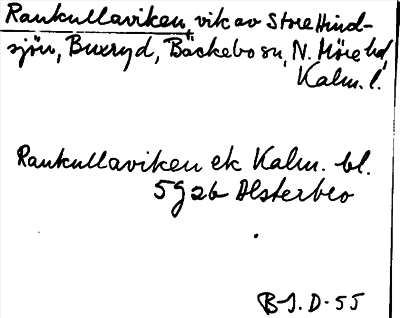 Rankullaviken, vik av Store Hind-
sjön, Buxryd, Bäckebo sn, N. Möre hd,
Kalm. l.
Rankullaviken ek Kalm. bl.
5G 2b Alsterbro
B-J. D-55